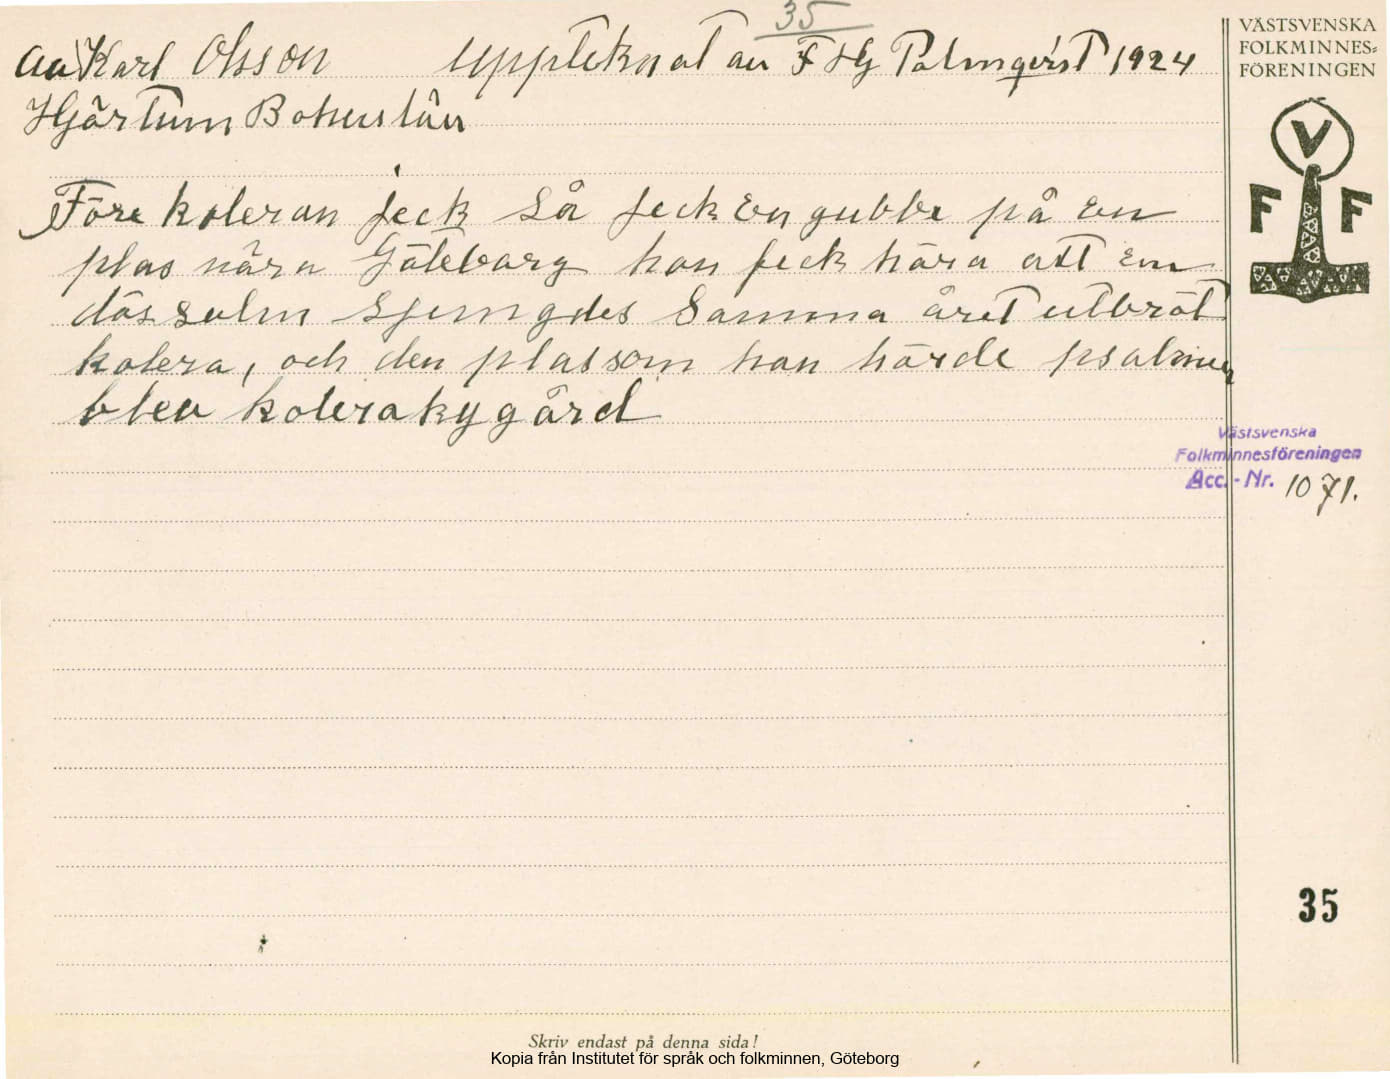 35
av Karl Olsson Upptecknat av F HG Palmqvist 1924
Hjärtum Bohuslän
Före koleran jeck så jeck en gubbe på en
plas nära Göteborg han feck höra att en
dössalm sjungdes Samma året utbröt
kolera, och den plas som han hörde psalmen
blev kolerakygård
VÄSTSVENSKA
FOLKMINNES=
FÖRENINGEN
V
F F
Västsvenska
Folkminnesföreningen
Acc. - Nr. 1071.
35
Skriv endast på denna sida!
Kopia från Institutet för språk och folkminnen, Göteborg